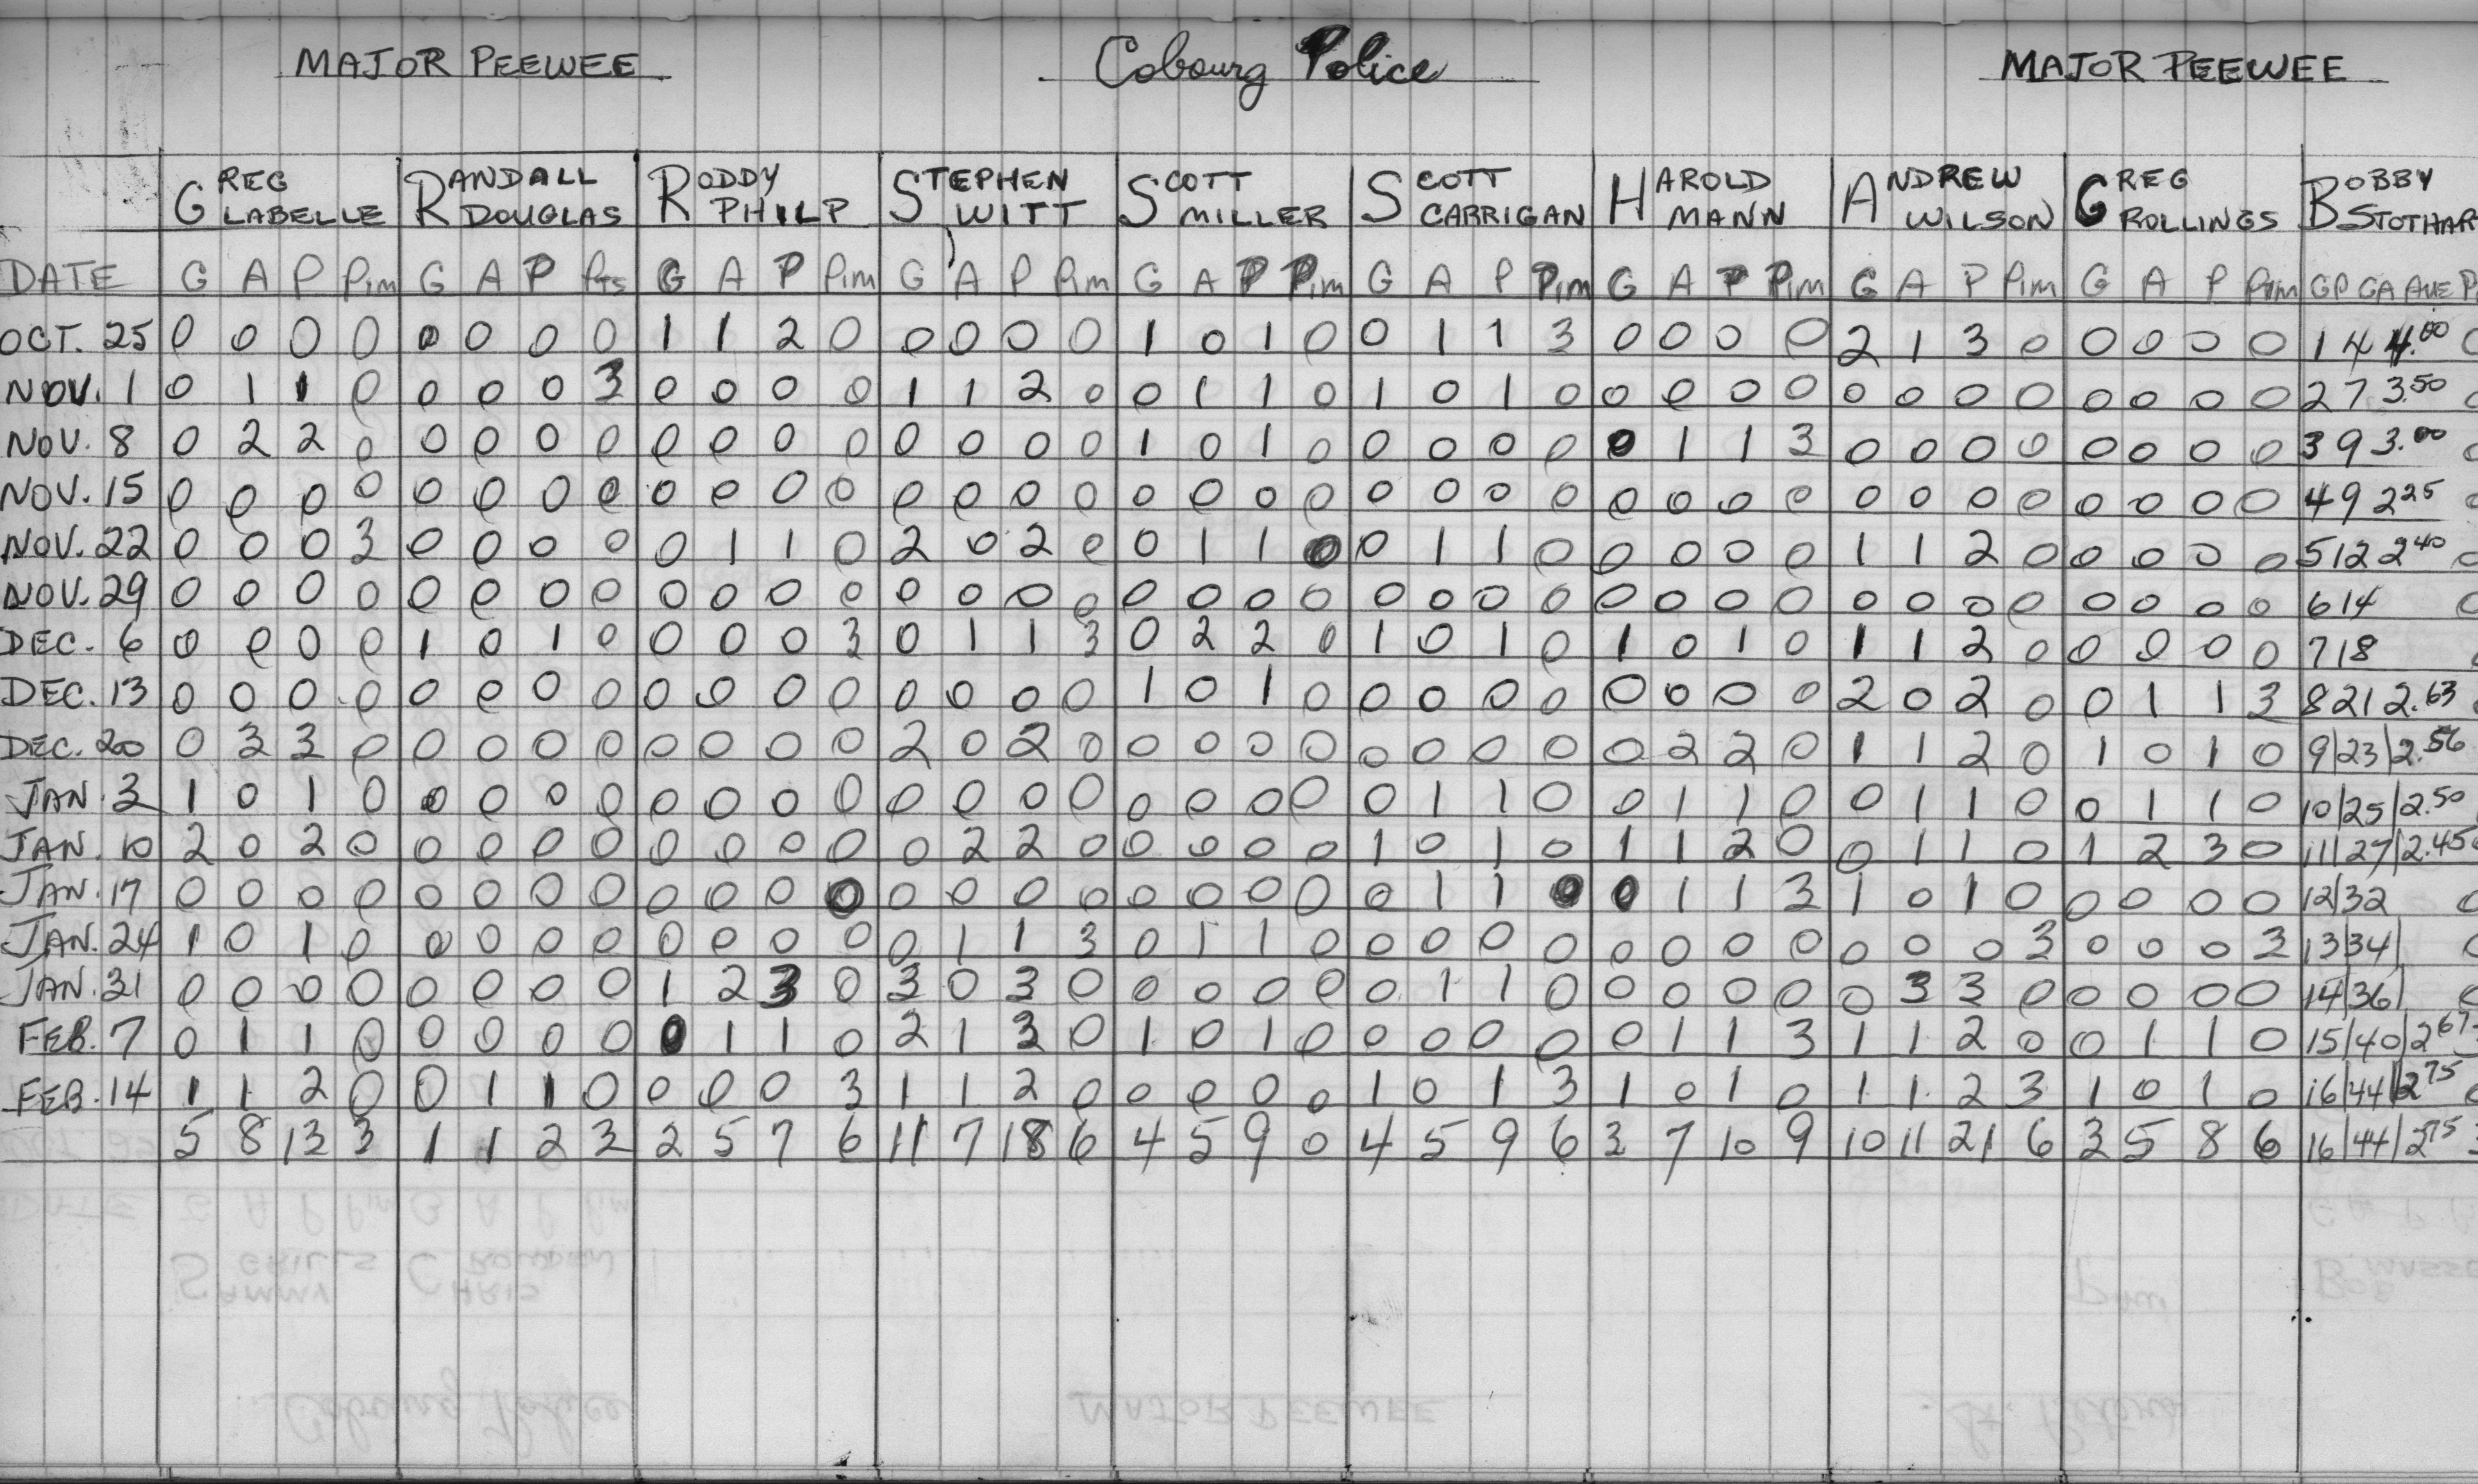 MAJOR PEEWEE Cobourg Police MAJOR PEEWEE
GREG RANDALL RODDY STEPHEN SCOTT SCOTT HAROLD ANDREW GREG BOBBY
LABELLE DOUGLAS PHILP WITT MILLER CARRIGAN MANN WILSON ROLLINGS STOTHAR
DATE G A P Pim G A P Pts G A P Pim G A P Pim G A P Pim G A P Pim G A P Pim G A P Pim G A P Pim GP GA AVE P
OCT. 25 0 0 0 0 0 0 0 0 1 1 2 0 0 0 0 0 1 0 1 0 0 1 1 3 0 0 0 0 2 1 3 0 0 0 0 0 1 4 4.00 0
NOV. 1 0 1 1 0 0 0 0 3 0 0 0 0 1 1 2 0 0 1 1 0 1 0 1 0 0 0 0 0 0 0 0 0 0 0 0 0 2 7 3.50 0
NOV. 8 0 2 2 0 0 0 0 0 0 0 0 0 0 0 0 0 1 0 1 0 0 0 0 0 0 1 1 3 0 0 0 0 0 0 0 0 3 9 3.00 0
NOV. 15 0 0 0 0 0 0 0 0 0 0 0 0 0 0 0 0 0 0 0 0 0 0 0 0 0 0 0 0 0 0 0 0 0 0 0 0 4 9 2 25 0
NOV. 22 0 0 0 3 0 0 0 0 0 1 1 0 2 0 2 0 0 1 1 0 0 1 1 0 0 0 0 0 1 1 2 0 0 0 0 0 5 12 2 40 0
NOV. 29 0 0 0 0 0 0 0 0 0 0 0 0 0 0 0 0 0 0 0 0 0 0 0 0 0 0 0 0 0 0 0 0 0 0 0 0 6 14 0
DEC. 6 0 0 0 0 1 0 1 0 0 0 0 3 0 1 1 3 0 2 2 0 1 0 1 0 1 0 1 0 1 1 2 0 0 0 0 0 7 18
DEC. 13 0 0 0 0 0 0 0 0 0 0 0 0 0 0 0 0 1 0 1 0 0 0 0 0 0 0 0 0 2 0 2 0 0 1 1 3 8 21 2.63
DEC. 20 0 3 3 0 0 0 0 0 0 0 0 0 2 0 2 0 0 0 0 0 0 0 0 0 0 2 2 0 1 1 2 0 1 0 1 0 9|23|2.56
JAN. 3 1 0 1 0 0 0 0 0 0 0 0 0 0 0 0 0 0 0 0 0 0 1 1 0 0 1 1 0 0 1 1 0 0 1 1 0 10|25|2.50
JAN. 10 2 0 2 0 0 0 0 0 0 0 0 0 0 2 2 0 0 0 0 0 1 0 1 0 1 1 2 0 0 1 1 0 1 2 3 0 11|27|2.45
JAN. 17 0 0 0 0 0 0 0 0 0 0 0 0 0 0 0 0 0 0 0 0 0 1 1 0 0 1 1 3 1 0 1 0 0 0 0 0 12|32 0
JAN. 24 1 0 1 0 0 0 0 0 0 0 0 0 0 1 1 3 0 1 1 0 0 0 0 0 0 0 0 0 0 0 0 3 0 0 0 3 13|34| 0
JAN. 31 0 0 0 0 0 0 0 0 1 2 3 0 3 0 3 0 0 0 0 0 0 1 1 0 0 0 0 0 0 3 3 0 0 0 0 0 14|36| 0
FEB. 7 0 1 1 0 0 0 0 0 0 1 1 0 2 1 3 0 1 0 1 0 0 0 0 0 0 1 1 3 1 1 2 0 0 1 1 0 15|40|2 67
FEB. 14 1 1 2 0 0 1 1 0 0 0 0 3 1 1 2 0 0 0 0 0 1 0 1 3 1 0 1 0 1 1 2 3 1 0 1 0 16|44|2 75 0
5 8 13 3 1 1 2 3 2 5 7 6 11 7 18 6 4 5 9 0 4 5 9 6 3 7 10 9 10 11 21 6 3 5 8 6 16|44|2 75